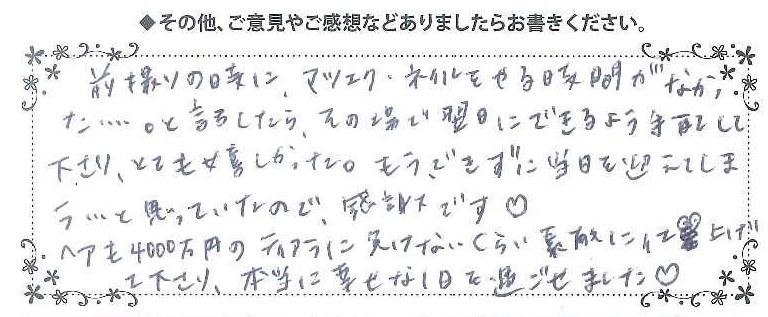 ◆その他、ご意見やご感想などありましたらお書きください。
前撮りの時に、マツエク・ネイルをやる時間がなかっ
た……。と話したら、その場で翌日にできるよう手配して
下さり、とても嬉しかった。もう、できずに当日を迎えてしま
う…と思っていたので、感謝です♡
ヘアも4000万円のティアラに負けないくらい素敵に仕上げ
て下さり、本当に幸せな1日を過ごせました♡